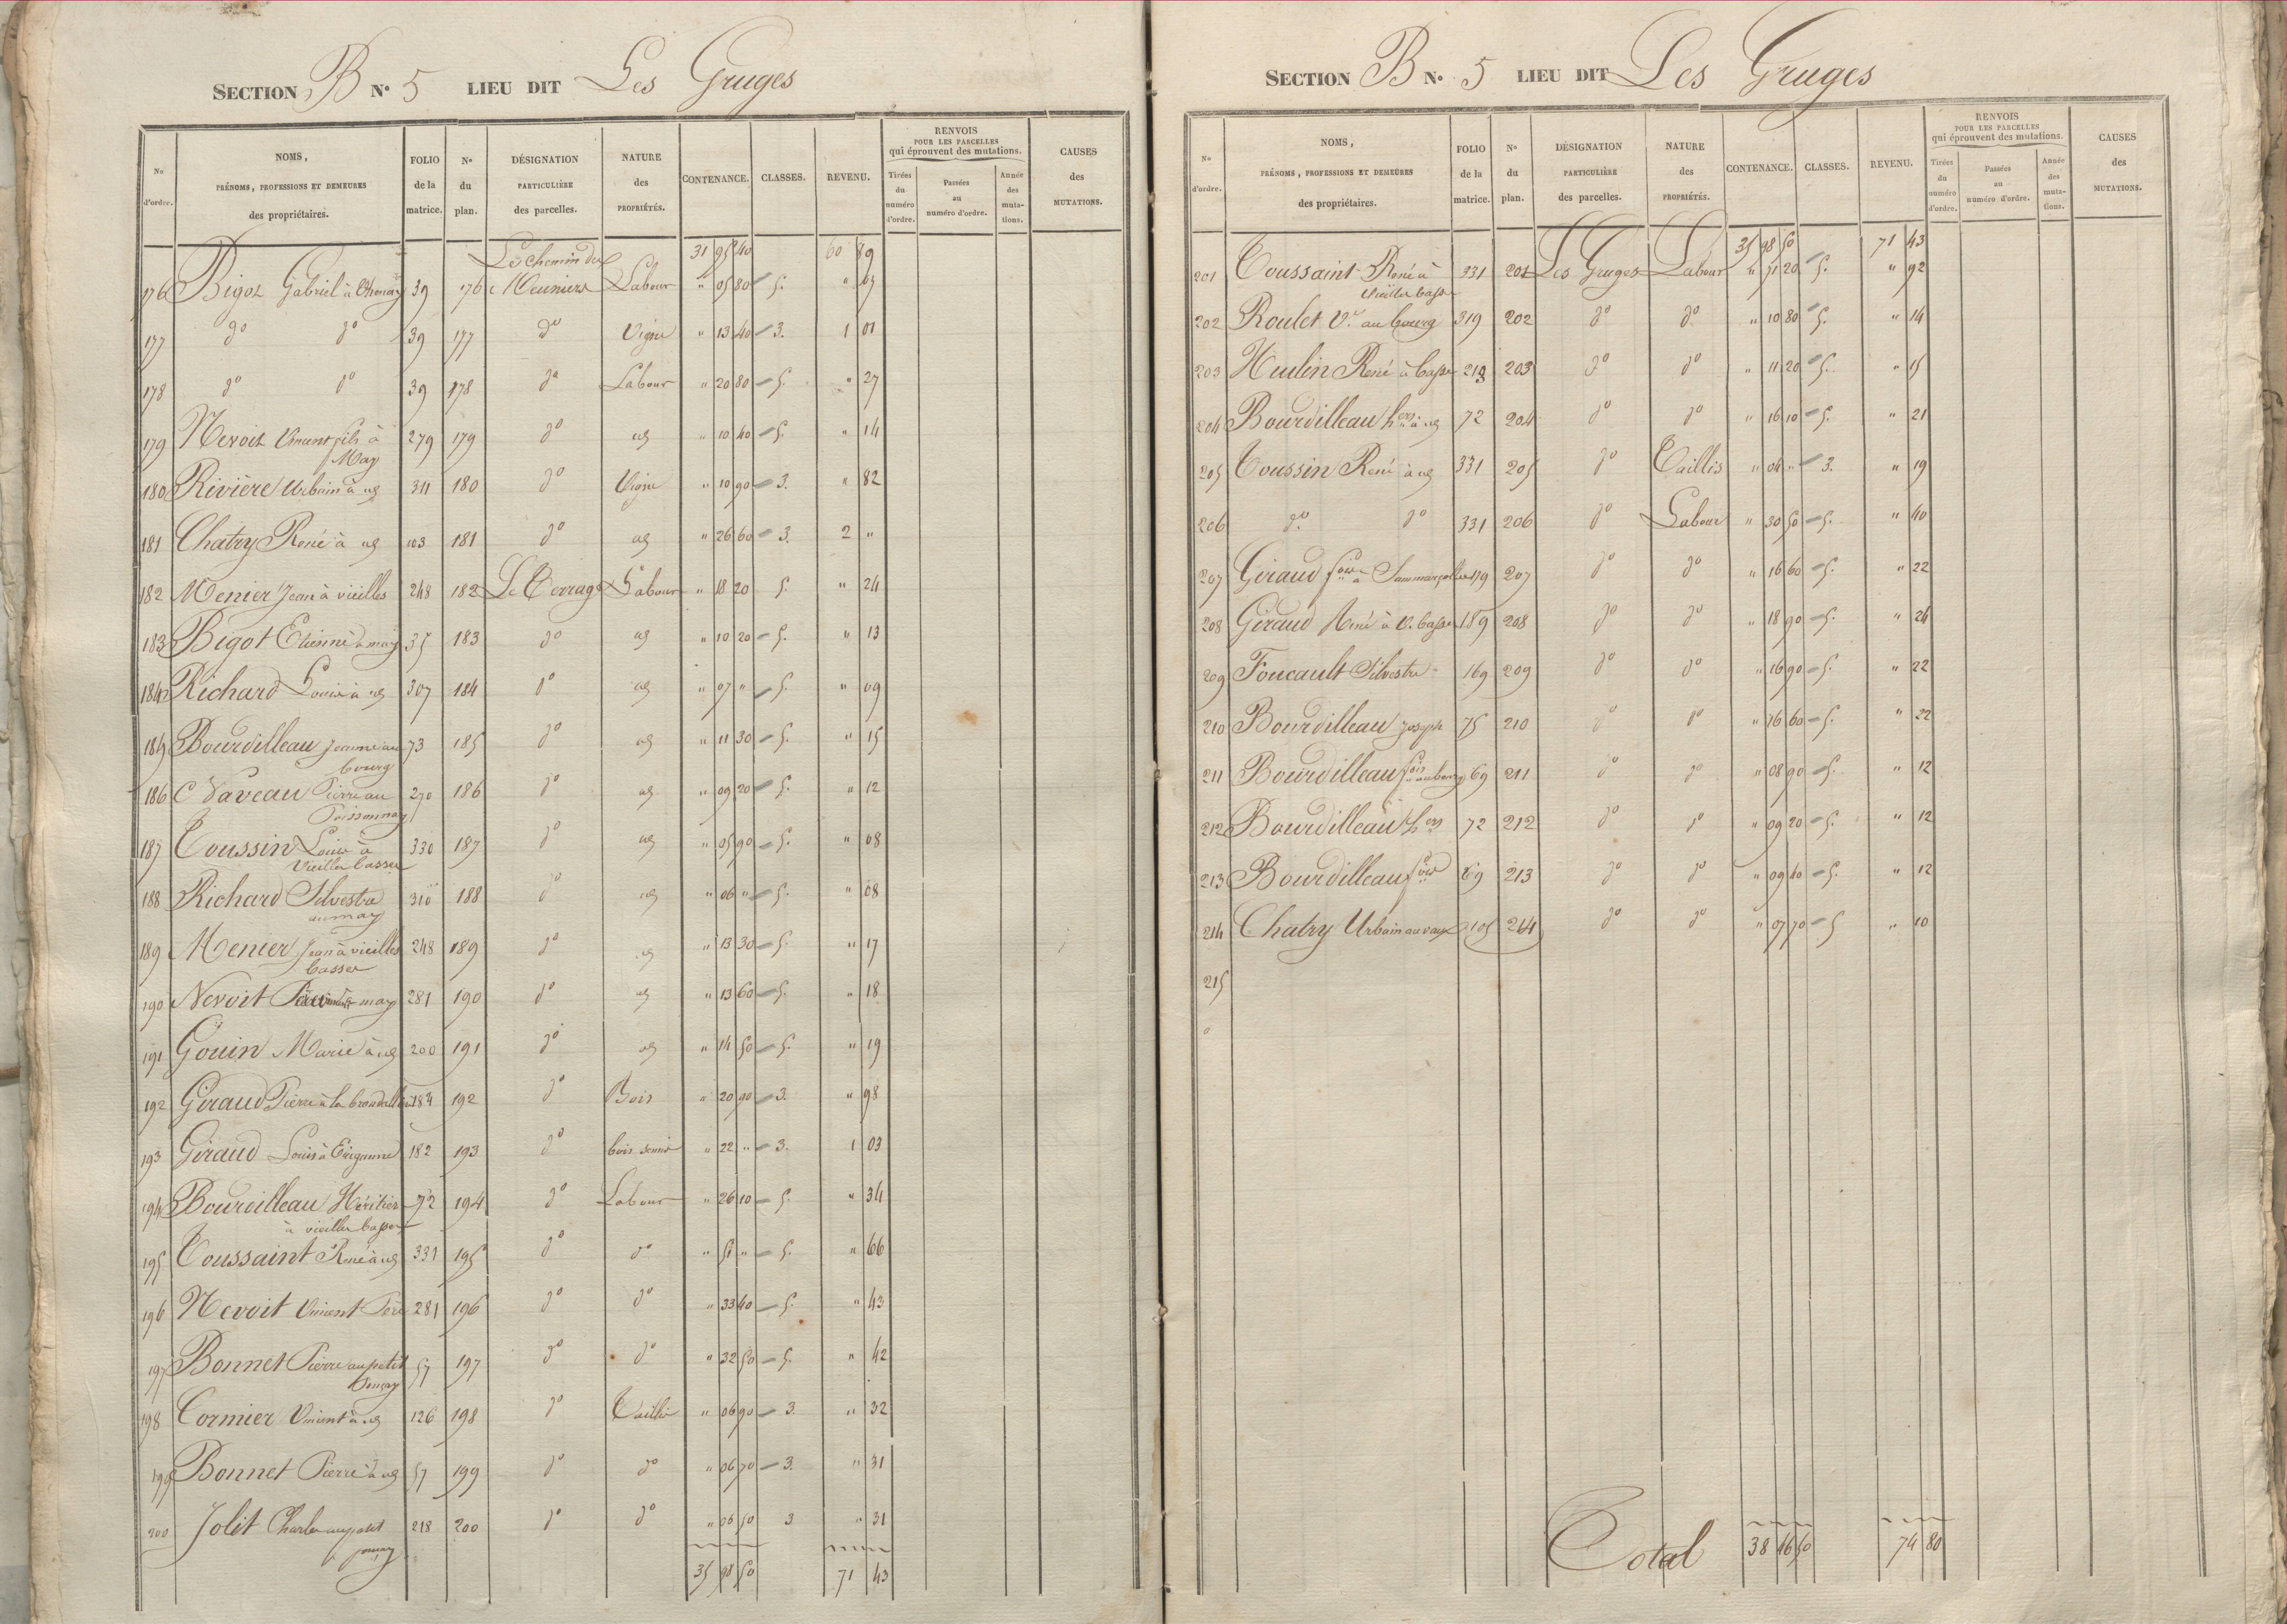 SECTION B N° 5 LIEU DIT Les Gruges
N° d'ordre. NOMS, PRÉNOMS, PROFESSIONS ET DEMEURES des propriétaires. FOLIO de la matrice. N° du plan. DÉSIGNATION PARTICULIÈRE des parcelles. NATURE des PROPRIÉTÉS. CONTENANCE. CLASSES. REVENU. RENVOIS POUR LES PARCELLES qui éprouvent des mutations. Tirées du numéro d'ordre. Passées au numéro d'ordre. Année des mutations. CAUSES des MUTATIONS.
31 95 40 60 89
176 Bigot Gabriel à 39 176 Le chemin des Meuniers Labour " 05 80 5. " 07
177 do do 39 177 do Vigne " 13 40 3. 1 01
178 do do 39 178 do Labour " 20 80 5. " 27
179 Nevoit Vincent fils à May 279 179 do id " 10 40 5. " 14
180 Rivière Urbain à id 311 180 do Vigne " 10 90 3. " 82
181 Chatry René à id 103 181 do id " 26 60 3. 2 "
182 Menier Jean à vieilles 248 182 Le Terrage Labour " 18 20 5. " 24
183 Bigot Etienne à may 35 183 do id " 10 20 5. " 13
184 Richard Louis à id 307 184 do id " 07 " 5. " 09
185 Bourdilleau Jeanne au bourg 73 185 do id " 11 30 5. " 15
186 Naveau Pierre au 270 186 do id " 09 20 5. " 12
187 Toussin Louis à Vieilles basses 330 187 do id " 05 90 5. " 08
188 Richard Silvestre au may 310 188 do id " 06 " 5. " 08
189 Menier Jean à vieilles basses 248 189 do id " 13 30 5. " 17
190 Nevoit may 281 190 do id " 13 60 5. " 18
191 Gouin Marie à id 200 191 do id " 14 50 5. " 19
192 Giraud Pierre à la 184 192 do Bois " 20 90 3. " 98
193 Giraud Louis à 182 193 do bois " 22 " 3. 1 03
194 Bourdilleau Héritiers à vieilles basses 72 194 do Labour " 26 10 5. " 34
195 Toussaint René à id 331 195 do do " 51 " 5. " 66
196 Nevoit Vincent Père 281 196 do do " 33 40 5. " 43
197 Bonnet Pierre au petit 57 197 do do " 32 50 5. " 42
198 Cormier Vincent à id 126 198 do Taillis " 06 90 3. " 32
199 Bonnet Pierre à id 57 199 do do " 06 70 3. " 31
200 Jolit Charles au petit 218 200 do do " 06 50 3 " 31
35 98 50 71 43
SECTION B N° 5 LIEU DIT Les Gruges
N° d'ordre. NOMS, PRÉNOMS, PROFESSIONS ET DEMEURES des propriétaires. FOLIO de la matrice. N° du plan. DÉSIGNATION PARTICULIÈRE des parcelles. NATURE des PROPRIÉTÉS. CONTENANCE. CLASSES. REVENU. RENVOIS POUR LES PARCELLES qui éprouvent des mutations. Tirées du numéro d'ordre. Passées au numéro d'ordre. Année des mutations. CAUSES des MUTATIONS.
35 98 50 71 43
201 Toussaint René à Vieilles basses 331 201 Les Gruges Labour " 71 20 5. " 92
202 Roulet Ve au bourg 319 202 do do " 10 80 5. " 14
203 Hulin René à basses 213 203 do do " 11 20 5. " 15
204 Bourdilleau hers à id 72 204 do do " 16 10 5. " 21
205 Toussin René à id 331 205 do Taillis " 04 " 3. " 19
206 do do 331 206 do Labour " 30 50 5. " 40
207 Giraud à 179 207 do do " 16 60 5. " 22
208 Giraud René à V. basses 189 208 do do " 18 90 5. " 24
209 Foucault Silvestre 169 209 do do " 16 90 5. " 22
210 Bourdilleau Joseph 75 210 do do " 16 60 5. " 22
211 Bourdilleau fois au bourg 69 211 do do " 08 90 5. " 12
212 Bourdilleau hers 72 212 do do " 09 20 5. " 12
213 Bourdilleau fois 69 213 do do " 09 40 5. " 12
214 Chatry Urbain au 105 214 do do " 07 70 5 " 10
215
Total 38 46 50 74 80